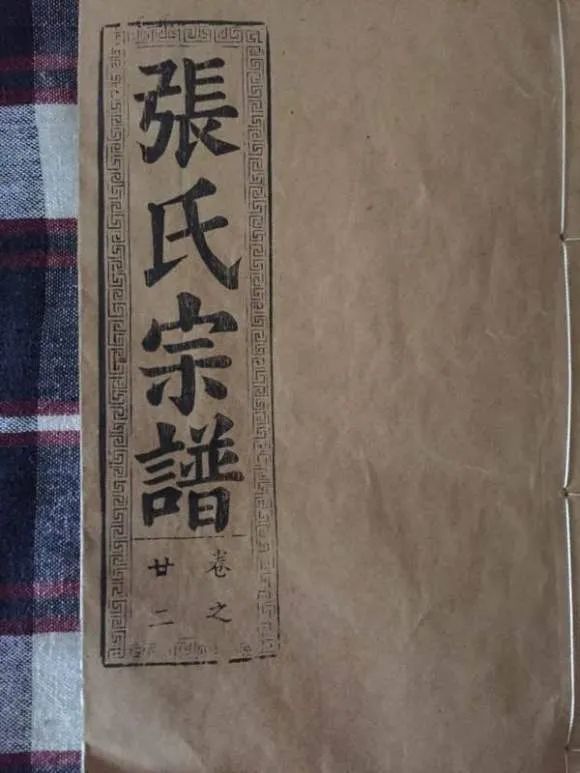 張氏宗譜
卷之
廿二